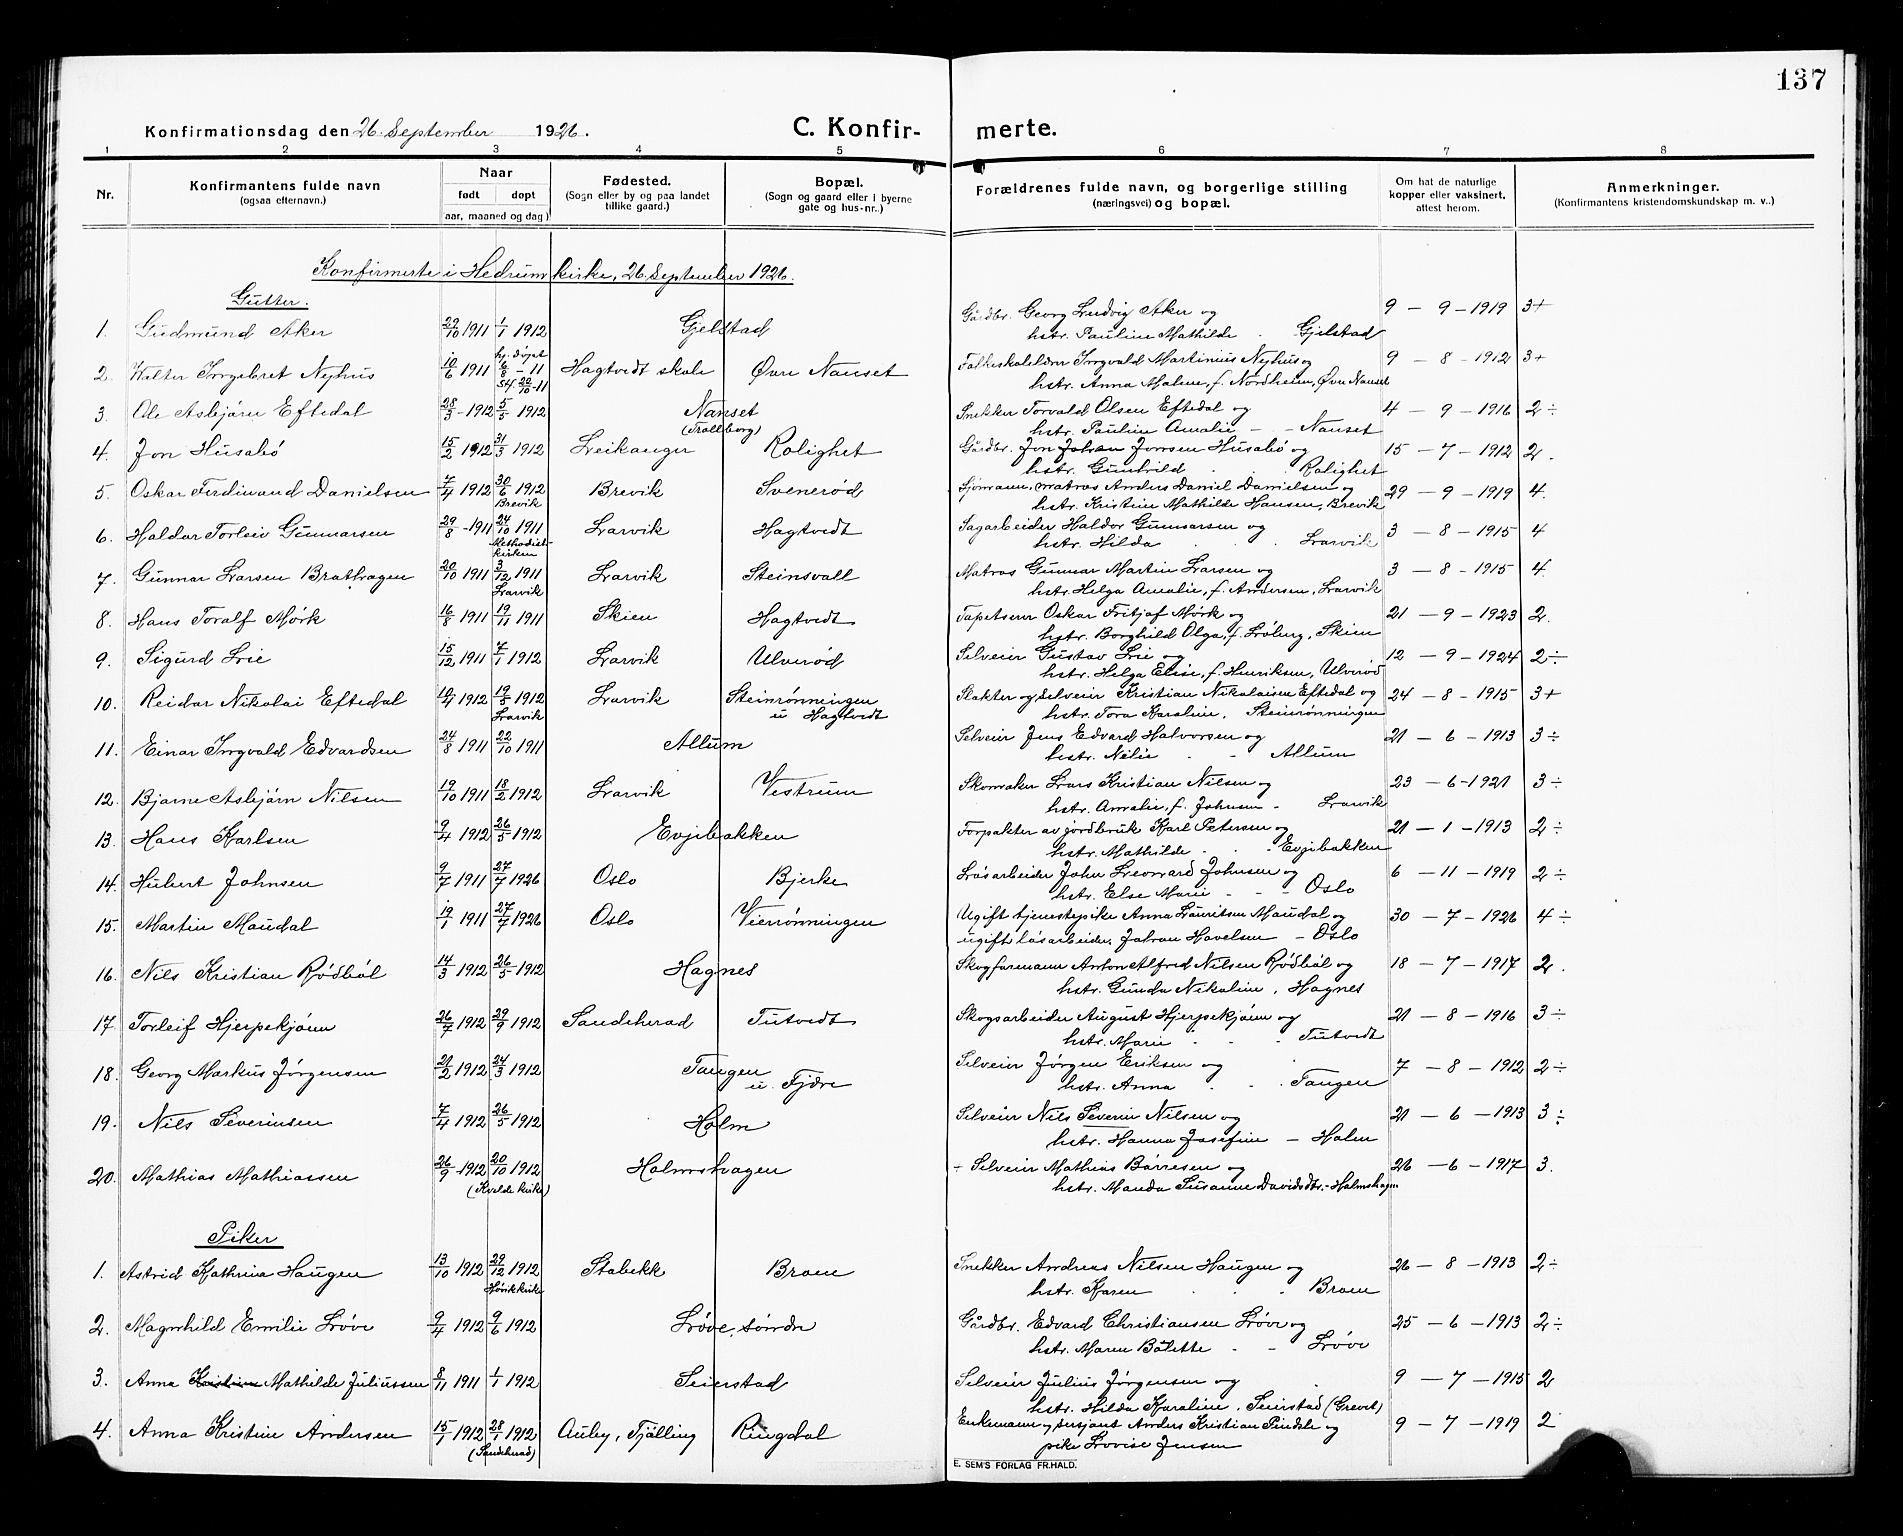 137
Konfirmationsdag den 26. September 1926. C. Konfir- merte.
1 2 3 4 5 6 7 8
Nr. Konfirmantens fulde navn (ogsaa efternavn.) Naar født døpt (aar, maaned og dag) Fødested. (Sogn eller by og paa landet tillike gaard.) Bopæl. (Sogn og gaard eller i byerne gate og hus-nr..) Forældrenes fulde navn, og borgerlige stilling (næringsvei) og bopæl. Om hat de naturlige kopper eller vaksinert, attest herom. Anmerkninger. (Konfirmantens kristendomskundskap m. v..)
Konfirmerte i Hedrum kirke, 26. September 1926.
Gutter.
1. Gudmund Aker 29/10 1911 1/1 1912 Gjelstad Gårdbr. Georg Ludvig Aker og 9 – 9 – 1919 3+
hstr. Pauline Mathilde - Gjelstad
2. Walter Ingebret Nyhus 10/6 1911 hj. døpt 6/8 - 11 st. 20/10 - 11 Hagtvedt skole Øvre Nanset Folkeskolelærer Ingvald Martinius Nyhus og 9 – 8 – 1912 3+
hstr. Anna Malene, f. Nordheim, Øvre Nanset
3. Ole Asbjørn Eftedal 28/3 - 1912 5/5 1912 Nanset (Trollborg) Snekker Torvald Olsen Eftedal og 4 – 9 – 1916 2÷
hstr. Pauline Amalie - - Nanset
4. Jon Husabø 15/2 1912 31/3 1912 Leikanger Rolighet Gårdbr. Jon Johan Jonsen Husabø og 15 – 7 – 1912 2.
hstr. Gunhild - - Rolighet
5. Oskar Ferdinand Danielsen 7/4 1912 30/6 1912 Brevik Brevik Svenerød Sjømann, matros Anders Daniel Danielsen og 29 – 9 – 1919 4.
hstr. Kristine Mathilde Hansen, Brevik
6. Haldor Torleiv Gunnarsen 29/8 - 1911 24/10 1911 Methodistkirken Larvik Hagtvedt Sagarbeider Haldor Gunnarsen og 3 – 8 – 1915 4
hstr. Hilda - - Larvik
7. Gunnar Larsen Brathagen 20/10 1911 3/12 1911 Larvik Larvik Steinsvall Matros Gunnar Martin Larsen og 3 – 8 – 1915 4.
hstr. Helga Amalie, f. Andersen, Larvik
8. Hans Toralf Mørk 16/8 1911 19/11 1911 Skien Hagtvedt Tapetserer Oskar Fritjof Mørk og 21 – 9 – 1923 2.
hstr. Borghild Olga, f. Løberg, Skien
9. Sigurd Lie 15/12 1911 7/1 1912 Larvik Ulverød Selveier Gustav Lie og 12 – 9 – 1924 2÷
hstr. Helga Elise, f. Henriksen, Ulverød
10. Reidar Nikolai Eftedal 10/4 1912 19/5 1912 Larvik Larvik Steinrønningen u Hagtvedt Slakter og selveier Kristian Nikolaisen Eftedal og 24 – 8 – 1915 3+
hstr. Tora Karoline, Steinrønningen
11. Einar Ingvald Edvardsen 24/8 1911 22/10 1911 Allum Selveier Jens Edvard Halvorsen og 21 – 6 – 1913 3÷
hstr. Nilie - - Allum
12. Bjarne Asbjørn Nilsen 19/10 1911 18/2 1912 Larvik Vestrum Skomaker Lars Kristian Nilsen og 23 – 6 – 1921 3÷
hstr. Amalie, f. Johnsen - Larvik
13. Hans Karlsen 9/4 1912 26/5 1912 Evjebakken Forpakter av jordbruk Karl Petersen og 21 – 1 – 1913 2÷
hstr. Mathilde - - Evjebakken
14. Hubert Johnsen 9/7 1911 27/7 1926 Oslo Bjerke Løsarbeider John Leonard Johnsen og 6 – 11 – 1919 2÷
hstr. Else Marie - - - Oslo
15. Martin Maudal 19/1 1911 27/7 1926 Oslo Vierrønningen Ugift tjenestepike Anna Lauritsen Maudal og 30 – 7 – 1926 4÷
ugift løsarbeider, Johan Havelsen - Oslo
16. Nils Kristian Rødbøl 14/3 1912 26/5 1912 Hagnes Skogformann Anton Alfred Nilsen Rødbøl og 18 – 7 – 1917 2.
hstr. Gunda Nikoline, Hagnes
17 Torleif Hjerpekjønn 26/7 1912 29/9 1912 Sandeherad Tutvedt Skogsarbeider August Hjerpekjønn og 21 – 8 – 1916 3÷
hstr. Marie - - - Tutvedt
18. Georg Markus Jørgensen 21/2 1912 24/3 1912 Tangen u. Fjøre Selveier Jørgen Eriksen og 7 – 8 – 1912 2÷
hstr. Anna - - Tangen
19. Nils Severinsen 7/4 1912 26/5 1912 Holm Selveier Nils Severin Nilsen og 21 – 6 – 1913 3÷
hstr. Hanna Josefine - Holm
20. Mathias Mathiassen 26/9 - 1912 20/10 1912 (Kvelde kirke) Holmshagen ÷ Selveier Mathias Børresen og 26 – 6 – 1917 3.
hstr. Manda Susanne Davidsdtr. - Holmshagen
Piker
1. Astrid Kathrina Haugen 13/10 1912 29/12 1912 Høvik kirke Stabekk Broen Snekker Andreas Nilsen Haugen og 26 – 8 – 1913 2÷
hstr. Karen - - - Broen
2. Magnhild Emilie Løve 9/4 1912 9/6 1912 Løve, søndre Gårdbr. Edvard Christiansen Løve og 25 – 6 – 1913 2÷
hstr. Maren Bolette - - Løve
3. Anna Kristine Mathilde Juliussen 8/11 1911 1/1 1912 Seierstad Selveier Julius Jørgensen og 9 – 7 – 1915 2
hstr. Hilda Karoline, Seierstad (Grevet)
4. Anna Kristine Andersen 15/1 1912 28/1 1912 (Sandeherad) Auby, Tjølling Ringdal Enkemann og sersjant Anders Kristian Pindsle og 9 – 7 – 1919 2
pike Lovise Jensen
E. SEM'S FORLAG FR.HALD.